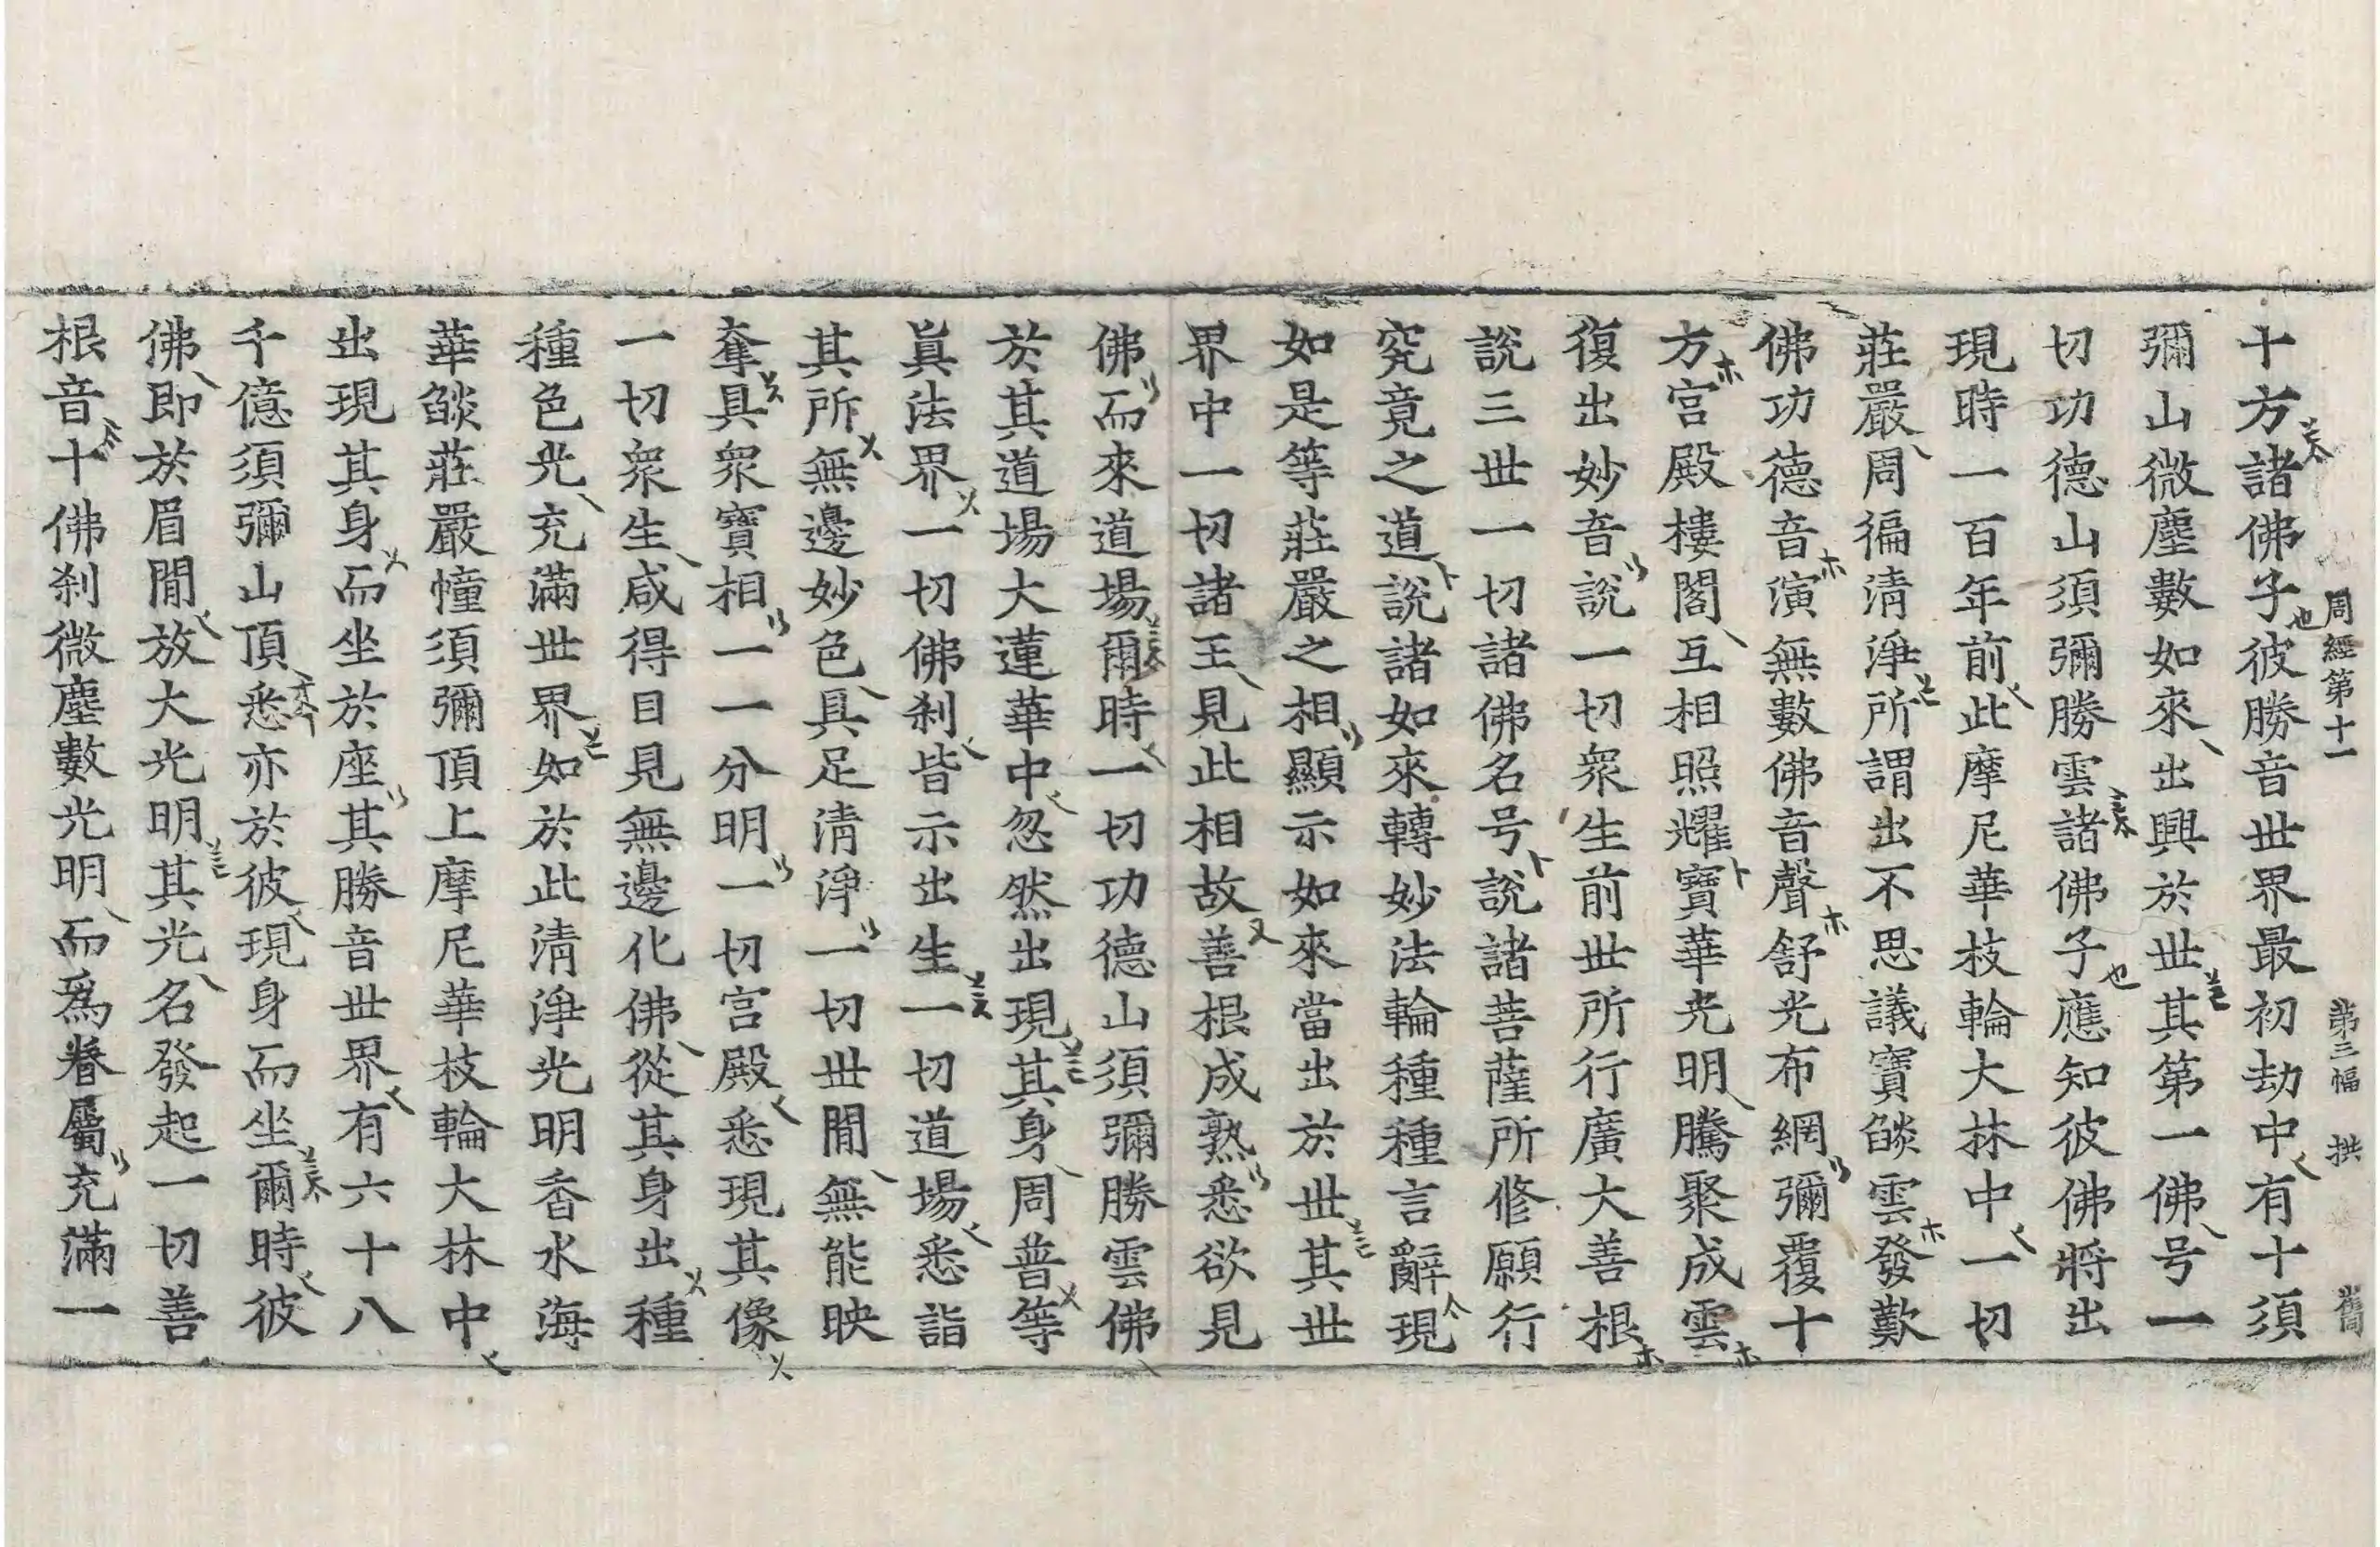 周經第十一 第三幅 拱 舊
十方諸佛子彼勝音世界最初劫中有十須
彌山微塵數如來出興於世其第一佛号一
切功德山須彌勝雲諸佛子應知彼佛將出
現時一百年前此摩尼華枝輪大林中一切
莊嚴周徧清淨所謂出不思議寶燄雲發歎
佛功德音演無數佛音聲舒光布網彌覆十
方宮殿樓閣互相照耀寶華光明騰聚成雲
復出妙音說一切衆生前世所行廣大善根
說三世一切諸佛名号說諸菩薩所修願行
究竟之道說諸如來轉妙法輪種種言辭現
如是等莊嚴之相顯示如來當出於世其世
界中一切諸王見此相故善根成熟悉欲見
佛而來道場爾時一切功德山須彌勝雲佛
於其道場大蓮華中忽然出現其身周普等
眞法界一切佛刹皆示出生一切道場悉詣
其所無邊妙色具足清淨一切世閒無能映
奪具衆寶相一一分明一切宮殿悉現其像
一切衆生咸得目見無邊化佛從其身出種
種色光充滿世界如於此清淨光明香水海
華燄莊嚴幢須彌頂上摩尼華枝輪大林中
出現其身而坐於座其勝音世界有六十八
千億須彌山頂悉亦於彼現身而坐爾時彼
佛即於眉閒放大光明其光名發起一切善
根音十佛刹微塵數光明而爲眷屬充滿一